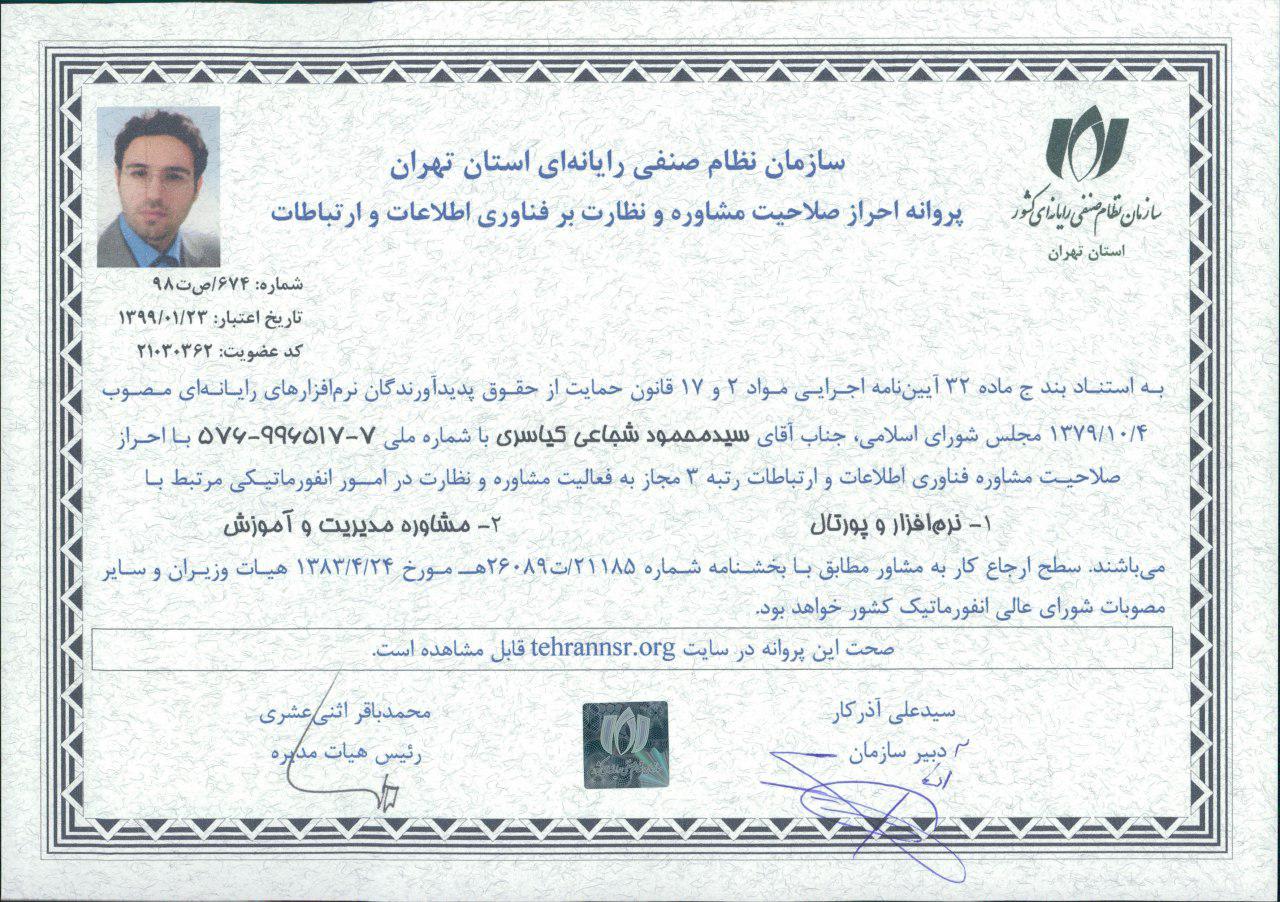 سازمان نظام صنفی رایانه‌ای کشور
استان تهران
سازمان نظام صنفی رایانه‌ای استان تهران
پروانه احراز صلاحیت مشاوره و نظارت بر فناوری اطلاعات و ارتباطات
شماره: ۶۷۴/ص‌ت۹۸
تاریخ اعتبار: ۱۳۹۹/۰۱/۲۳
کد عضویت: ۲۱۰۳۰۳۶۲
به استناد بند ج ماده ۳۲ آیین‌نامه اجرایی مواد ۲ و ۱۷ قانون حمایت از حقوق پدیدآورندگان نرم‌افزارهای رایانه‌ای مصوب
۱۳۷۹/۱۰/۴ مجلس شورای اسلامی، جناب آقای سیدمحمود شجاعی کیاسری با شماره ملی ۷-۹۹۶۵۱۷-۵۷۶ با احراز
صلاحیت مشاوره فناوری اطلاعات و ارتباطات رتبه ۳ مجاز به فعالیت مشاوره و نظارت در امور انفورماتیکی مرتبط با
۱- نرم‌افزار و پورتال ۲- مشاوره مدیریت و آموزش
می‌باشند. سطح ارجاع کار به مشاور مطابق با بخشنامه شماره ۲۱۱۸۵/ت۲۶۰۸۹هـ مورخ ۱۳۸۳/۴/۲۴ هیات وزیران و سایر
مصوبات شورای عالی انفورماتیک کشور خواهد بود.
صحت این پروانه در سایت tehrannsr.org قابل مشاهده است.
سیدعلی آذرکار
دبیر سازمان
محمدباقر اثنی‌عشری
رئیس هیات مدیره